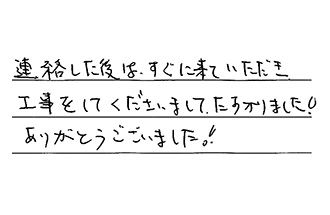 連絡した後は、すぐに来ていただき
工事をしてくださいまして、たすかりました!!
ありがとうございました。!!